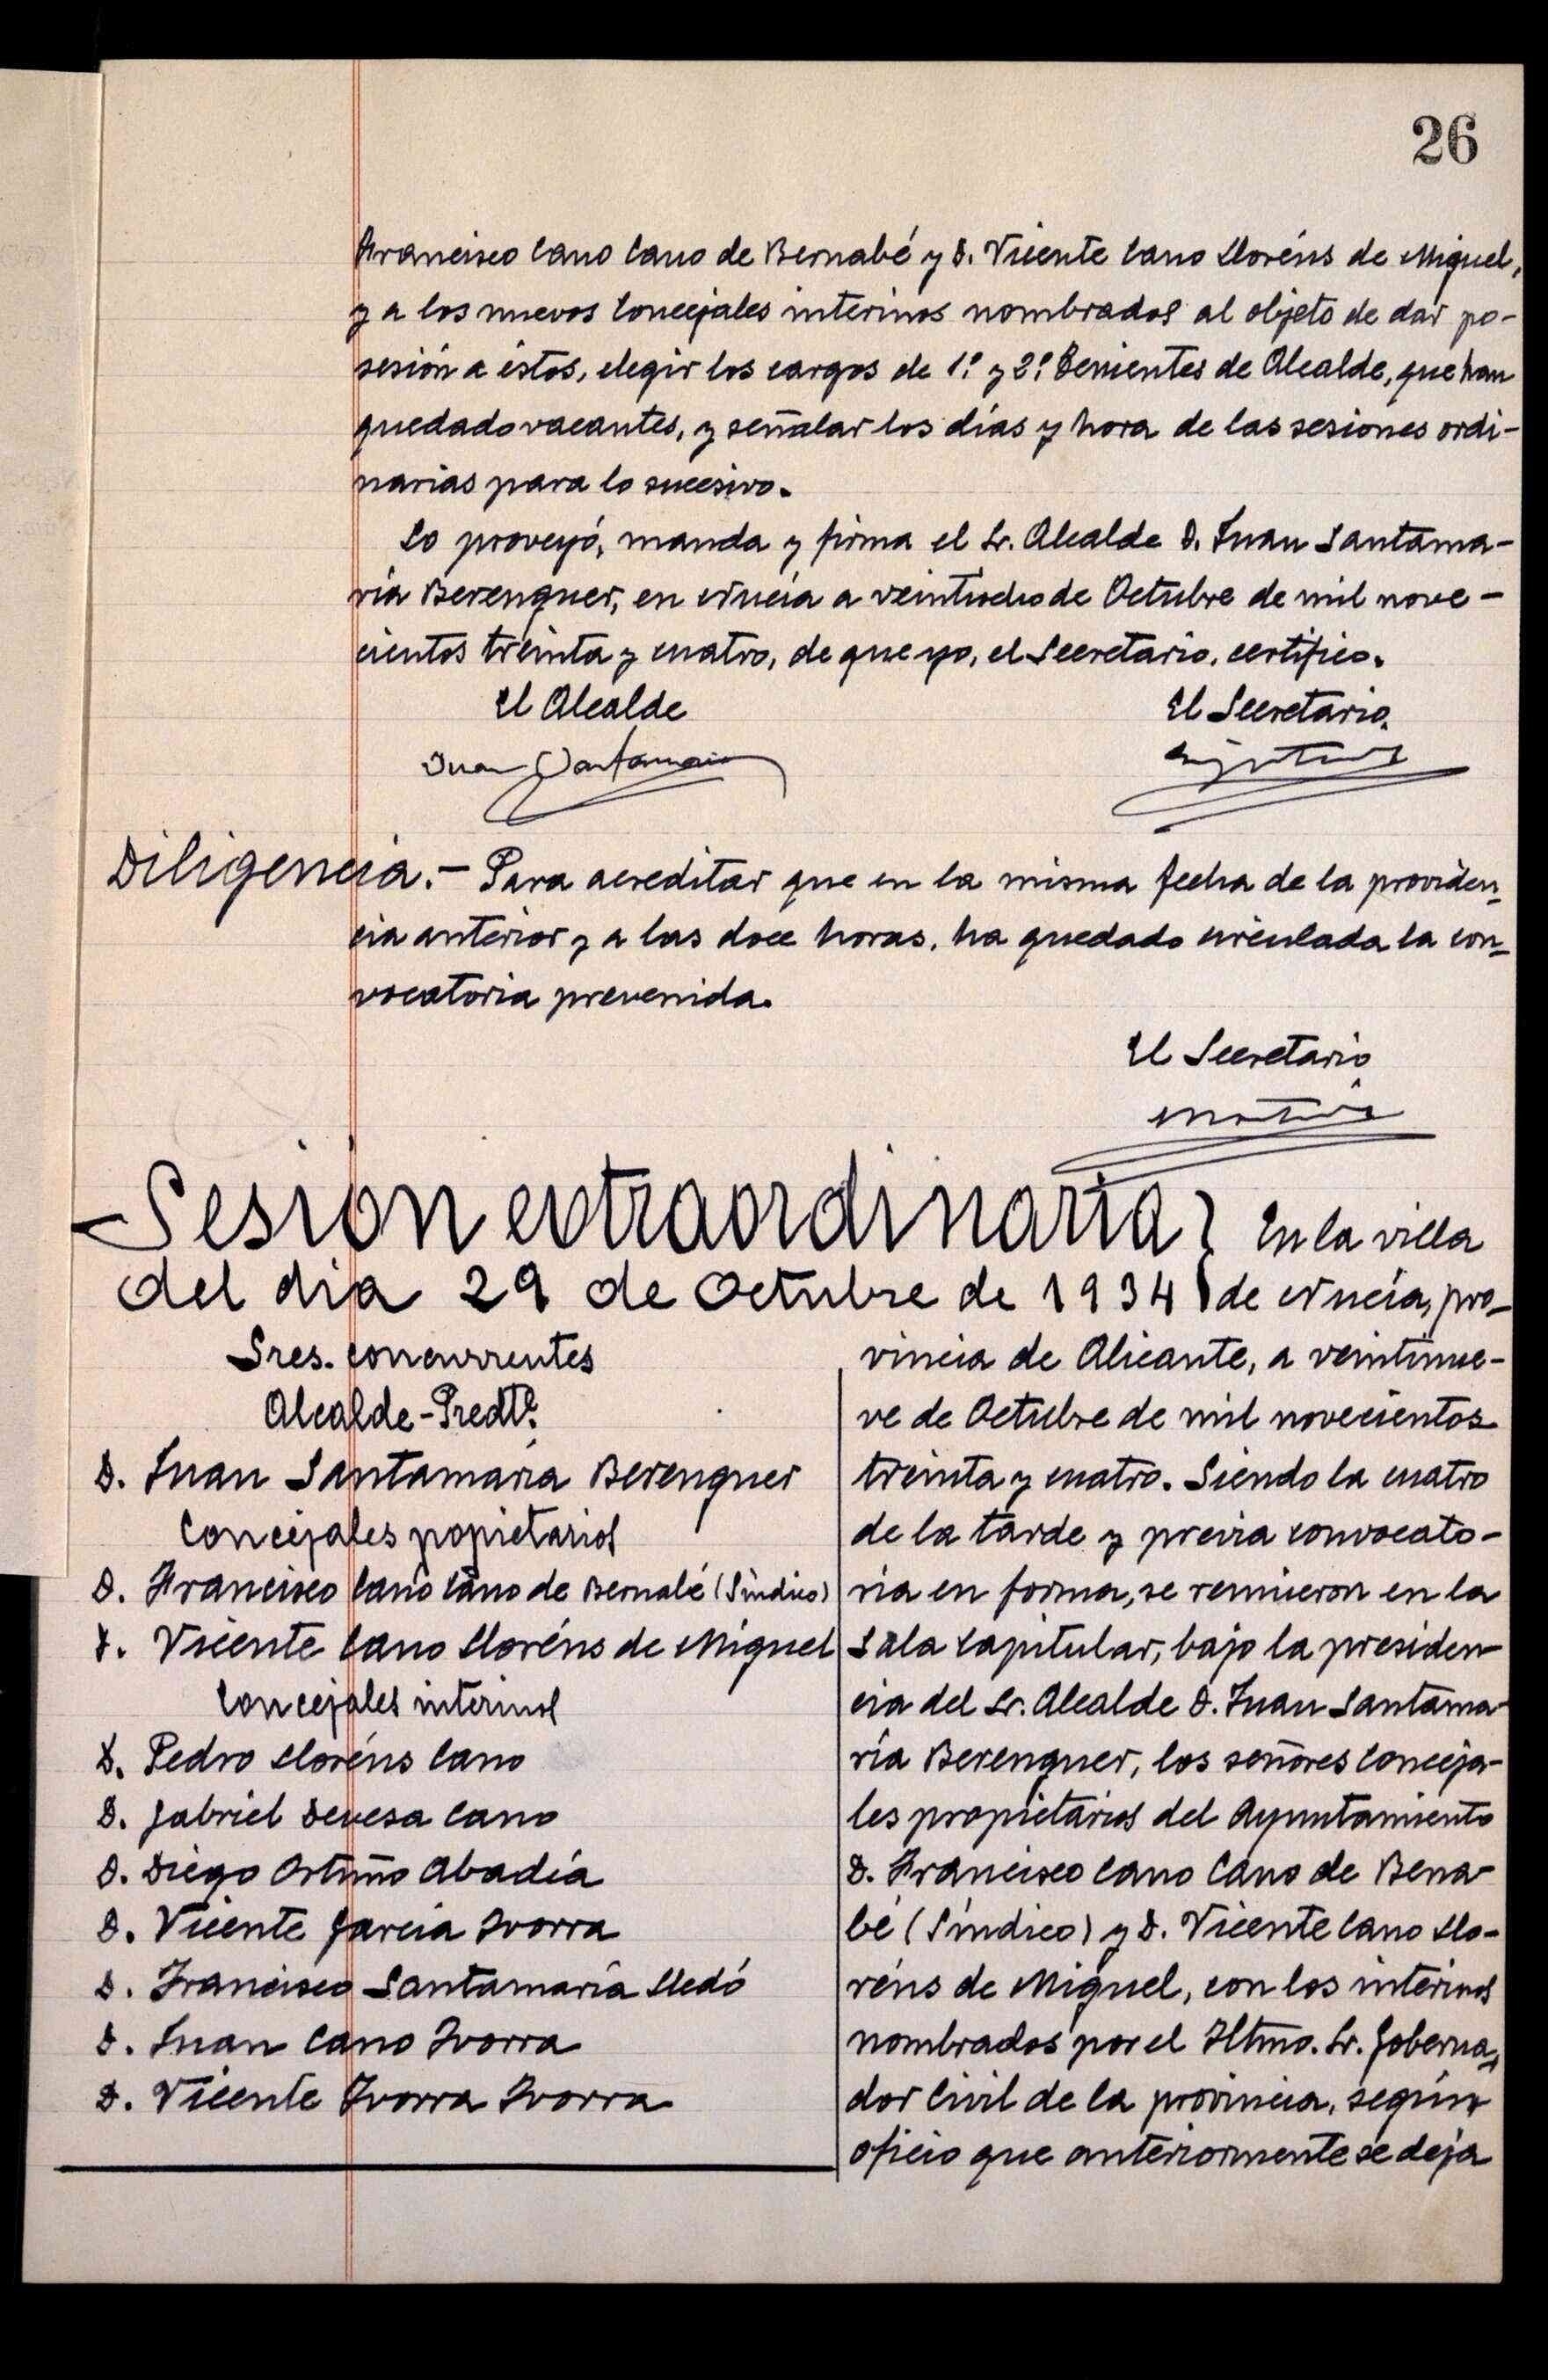 26
Francisco Cano Cano de Bernabé y D. Vicente Cano Lloréns de Miguel,
y a los nuevos Concejales interinos nombrados al objeto de dar po-
sesión a éstos, elegir los cargos de 1.º y 2.º Tenientes de Alcalde, que han
quedado vacantes, y señalar los días y hora de las sesiones ordi-
narias para lo sucesivo.
Lo proveyó, manda y firma el Sr. Alcalde D. Juan Santama-
ría Berenguer, en Nucía a veintiocho de Octubre de mil nove-
cientos treinta y cuatro, de que yo, el Secretario, certifico.
El Alcalde
El Secretario,
Juan Santamaria
Diligencia.- Para acreditar que en la misma fecha de la providen-
cia anterior y a las doce horas, ha quedado circulada la con-
vocatoria prevenida.
El Secretario
Sesión extraordinaria
del dia 29 de Octubre de 1934
Sres. concurrentes
Alcalde-Predte.
D. Juan Santamaría Berenguer
Concejales popietarios
D. Francisco Cano Cano de Bernabé (Síndico)
D. Vicente Cano Lloréns de Miguel
Concejales interinos
D. Pedro Lloréns Cano
D. Gabriel Devesa Cano
D. Diego Ortuño Abadía
D. Vicente García Ivorra
D. Francisco Santamaría Lledó
D. Juan Cano Ivorra
D. Vicente Ivorra Ivorra
En la villa
de Nucía, pro-
vincia de Alicante, a veintinue-
ve de Octubre de mil novecientos
treinta y cuatro. Siendo la cuatro
de la tarde y previa convocato-
ria en forma, se reunieron en la
Sala Capitular, bajo la presiden-
cia del Sr. Alcalde D. Juan Santama-
ría Berenguer, los señores Conceja-
les propietarios del Ayuntamiento
D. Francisco Cano Cano de Berna-
bé (Síndico) y D. Vicente Cano Llo-
réns de Miguel, con los interinos
nombrados por el Iltmo. Sr. Goberna-
dor Civil de la provincia, según
oficio que anteriormente se deja